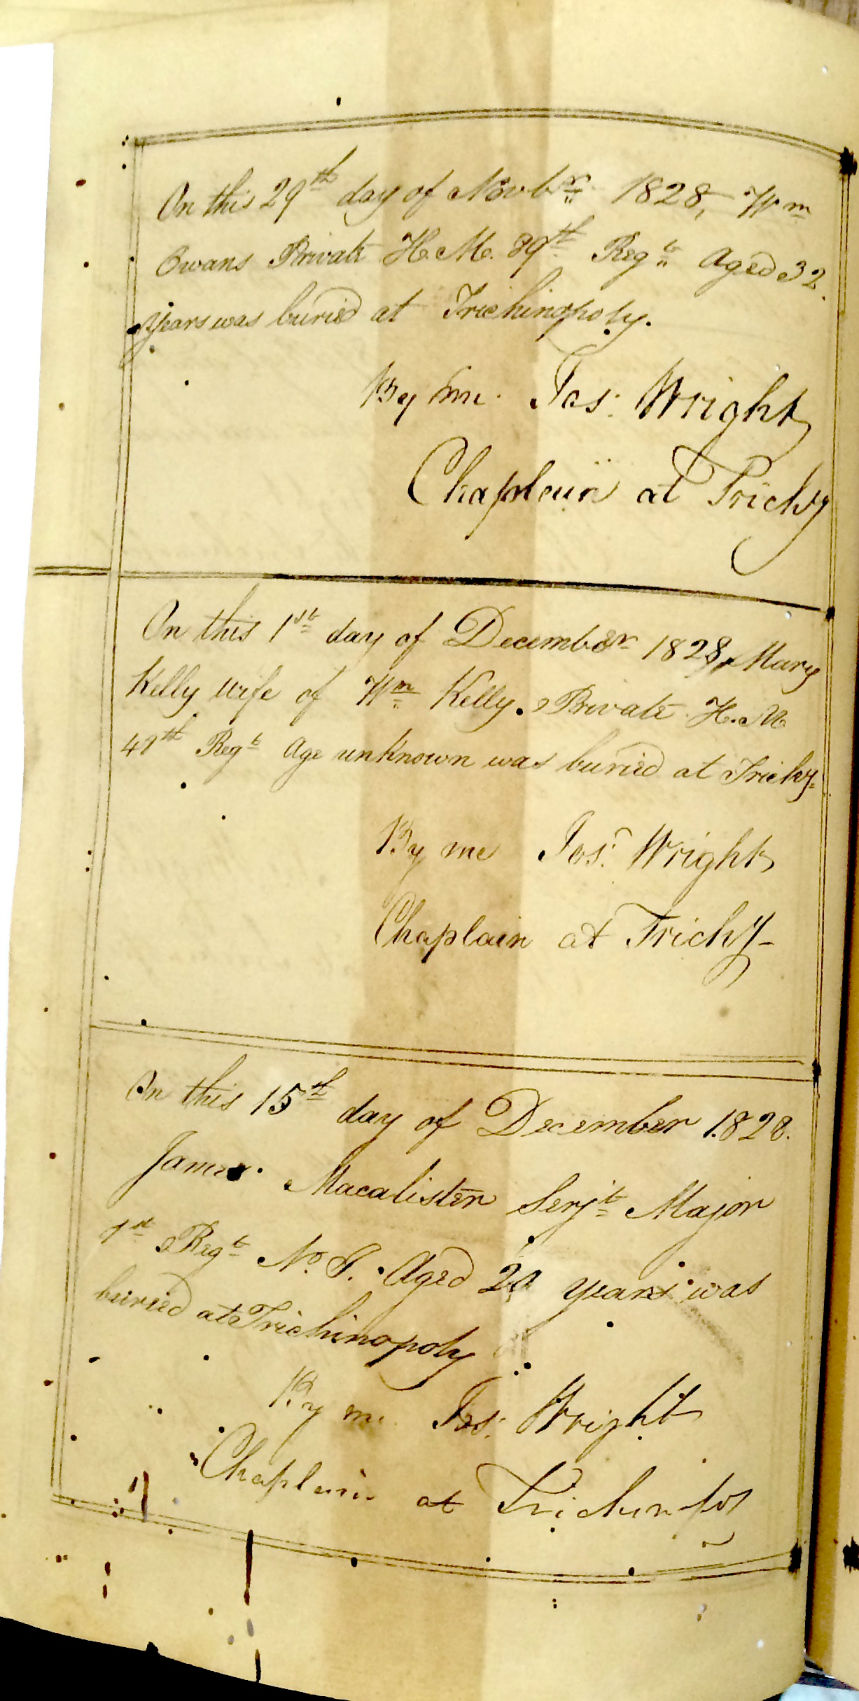 On this 29th day of Novbr 1828, Wm
Owans Private H.M. 89th Regt Aged 32
years was buried at Trichinopoly.
By me Jos: Wright
Chaplain at Trichy
On this 1st day of December 1828, Mary
Kelly wife of Wm Kelly Private H.M
48th Regt Age unknown was buried at Trichy.
By me Jos: Wright
Chaplain at Trichy
On this 15th day of December 1828.
James Macalister Serjt Major
1st Regt Aged years was
buried at Trichinopoly
By me Jos: Wright
Chaplain at